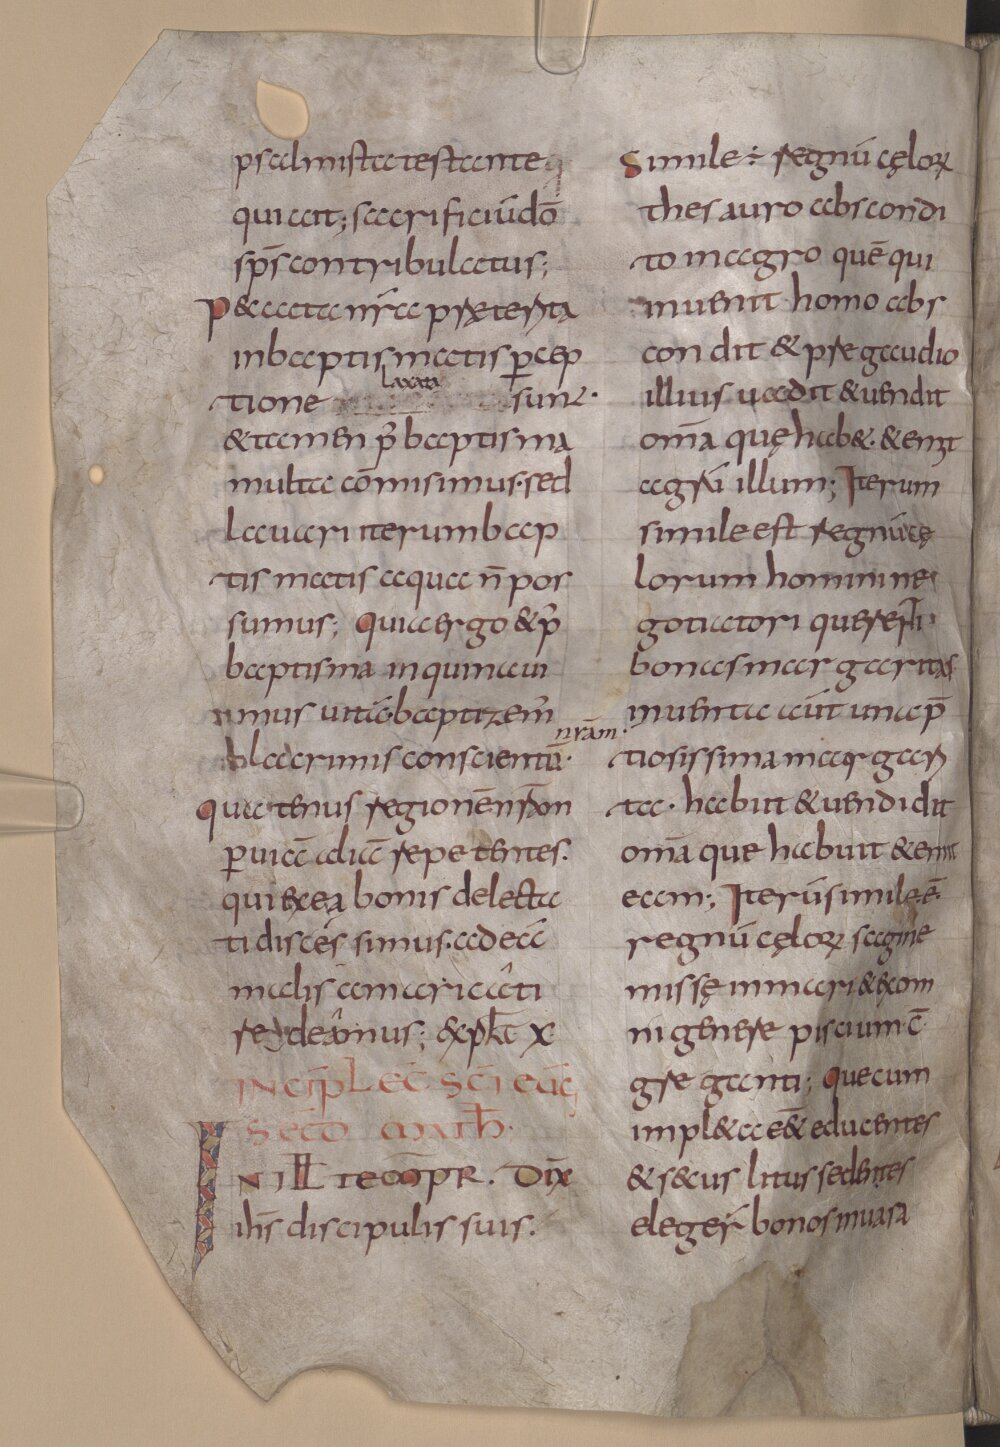 psalmista testante q
qui ait; sacrificiū dō
sp̄s contribulatus;
P&ccata nr̄a pręterita
in baptismatis p̄cep
tione laxata sunt.
& tamen p̄ baptisma
multa cōmisimus. sed
lauari iterum bap
tismatis aqua n̄ pos
sumus; Quia ergo & p̄
baptisma inquinaui
imus uitā. baptizem̄
lacrimis conscientiā nr̄am.
Quatenus regionē nr̄am
p̄ uiā aliā repetentes.
qui ex ea bonis delecta
ti discēs simus. ad eā
malis amaricati
redeāmus; explc̄ x
INCIP̄ LEC̄ SC̄I EUḠ
SECD̄ MATH̄.
IN ILL TEMP̄R. DIX̄
ih̄s discipulis suis.
Simile ÷ regnū cęloꝝ
thesauro abscondi
to in agro quē qui
inuenit homo abs
condit & pre gaudio
illius uadit & uendit
om̄a quę hab&. & emit
agrū illum; Iterum
simile est regnū cę
lorum homini ne
gotiatori querenti
bonas margaritas
inuenta aūt una p̄
tiosissima margari
ta. habiit & uendidit
om̄a que habuit & emit
eam; Iterū simile ē.
regnū cęloꝝ sagine
missę in mari & ex om
ni genere piscium c̄
greganti; Quecum
impl&a ē& educentes
& secus litus sedentes
eleger̄ bonos in uasa